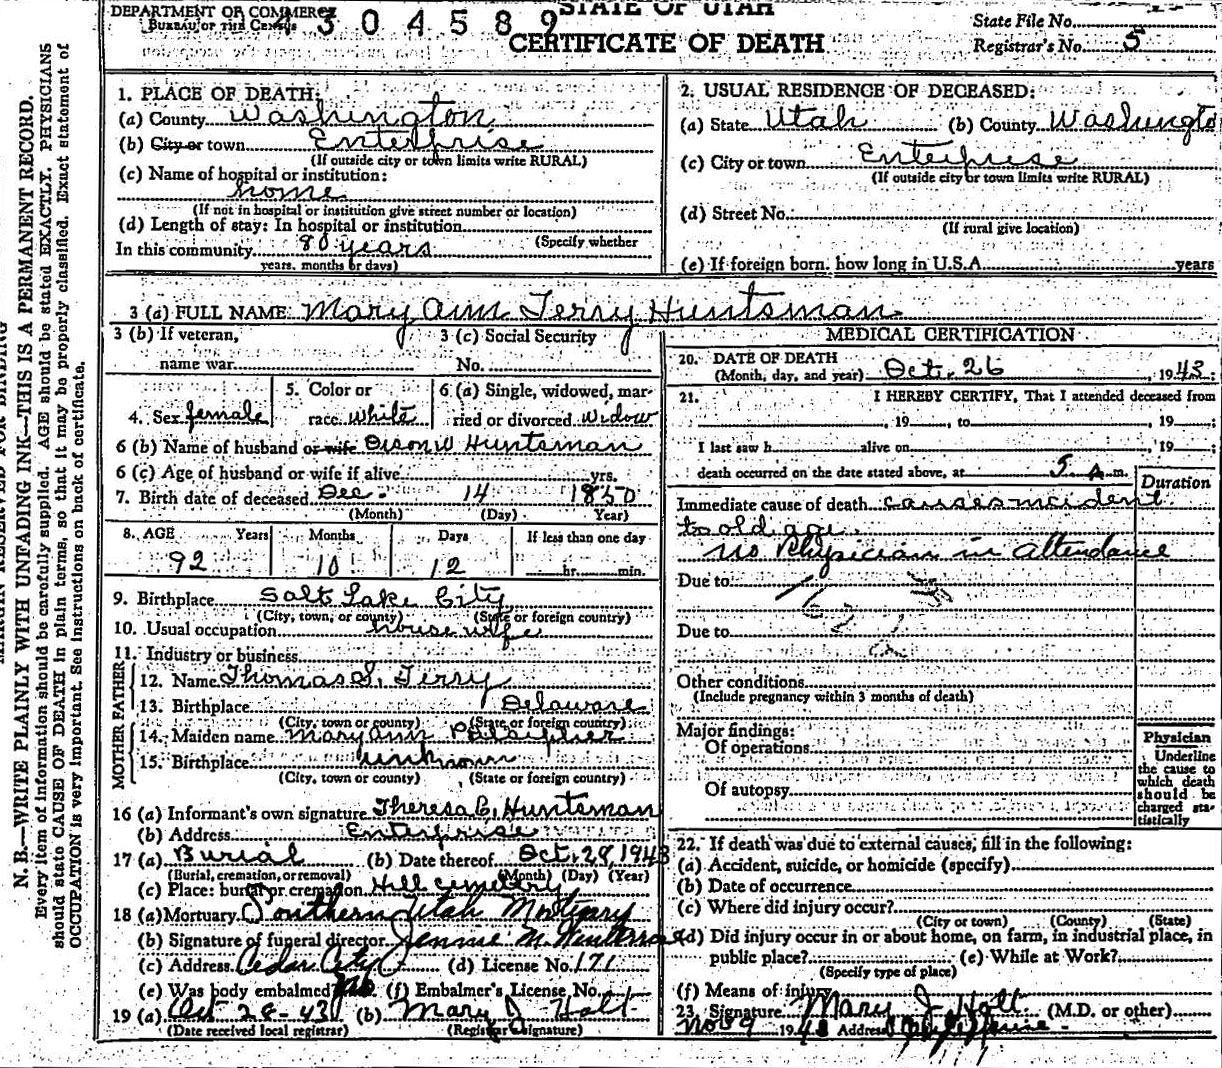 DEPARTMENT OF COMMERCE
BUREAU OF THE CENSUS
4 3 0 4 5 8 9
STATE OF UTAH
CERTIFICATE OF DEATH
State File No.
Registrar's No. 5
N. B.—WRITE PLAINLY WITH UNFADING INK—THIS IS A PERMANENT RECORD.
Every item of information should be carefully supplied. AGE should be stated EXACTLY. PHYSICIANS
should state CAUSE OF DEATH in plain terms, so that it may be properly classified. Exact statement of
OCCUPATION is very important. See instructions on back of certificate.
1. PLACE OF DEATH:
(a) County Washington
(b) City or town Enterprise
(If outside city or town limits write RURAL)
(c) Name of hospital or institution:
home
(If not in hospital or institution give street number or location)
(d) Length of stay: In hospital or institution
(Specify whether
In this community 80 years
years, months or days)
2. USUAL RESIDENCE OF DECEASED:
(a) State Utah (b) County Washingto
(c) City or town Enterprise
(If outside city or town limits write RURAL)
(d) Street No.
(If rural give location)
(e) If foreign born, how long in U.S.A. years
3 (a) FULL NAME Mary Ann Terry Huntsman
3 (b) If veteran,
name war
3 (c) Social Security
No.
4. Sex female
5. Color or
race white
6 (a) Single, widowed, mar-
ried or divorced widow
6 (b) Name of husband or wife Orson W Huntsman
6 (c) Age of husband or wife if alive yrs.
7. Birth date of deceased Dec. 14 1850
(Month) (Day) Year)
8. AGE Years Months Days If less than one day
92 10 12 hr. min.
9. Birthplace Salt Lake City
(City, town, or county) (State or foreign country)
10. Usual occupation house wife
11. Industry or business
FATHER
12. Name Thomas S. Terry
13. Birthplace Delaware
(City, town or county) (State or foreign country)
MOTHER
14. Maiden name Mary Ann
15. Birthplace unknown
(City, town or county) (State or foreign country)
16 (a) Informant's own signature Theresa C. Huntsman
(b) Address Enterprise
17 (a) Burial (b) Date thereof Oct. 28, 1943
(Burial, cremation, or removal) (Month) (Day) (Year)
(c) Place: burial or cremation Hill Cemetery
18 (a) Mortuary Southern Utah Mortuary
(b) Signature of funeral director Jennie M.
(c) Address Cedar City (d) License No. 171
(e) Was body embalmed? no (f) Embalmer's License No.
19 (a) Oct 28-43 (b) Mary J Holt
(Date received local registrar) (Registrar signature)
MEDICAL CERTIFICATION
20. DATE OF DEATH
(Month, day, and year) Oct. 26, 1943;
21. I HEREBY CERTIFY, That I attended deceased from
, 19 , to , 19 ;
I last saw h alive on , 19 ;
death occurred on the date stated above, at 5 A m.
Duration
Immediate cause of death causes incident
to old age.
no Physician in attendance
Due to
162
Due to
Other conditions
(Include pregnancy within 3 months of death)
Major findings:
Of operations
Of autopsy
Physician
Underline
the cause to
which death
should be
charged sta-
tistically
22. If death was due to external causes, fill in the following:
(a) Accident, suicide, or homicide (specify)
(b) Date of occurrence
(c) Where did injury occur?
(City or town) (County) (State)
(d) Did injury occur in or about home, on farm, in industrial place, in
public place? (e) While at Work?
(Specify type of place)
(f) Means of injury
23. Signature Mary J Holt (M.D. or other)
Nov 9 1943 Address